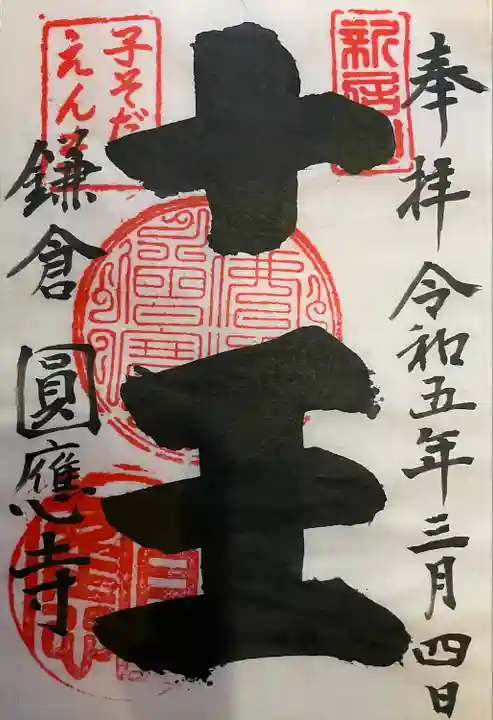 奉拝 令和五年三月四日
十王
鎌倉 圓應寺
子そだ
えん